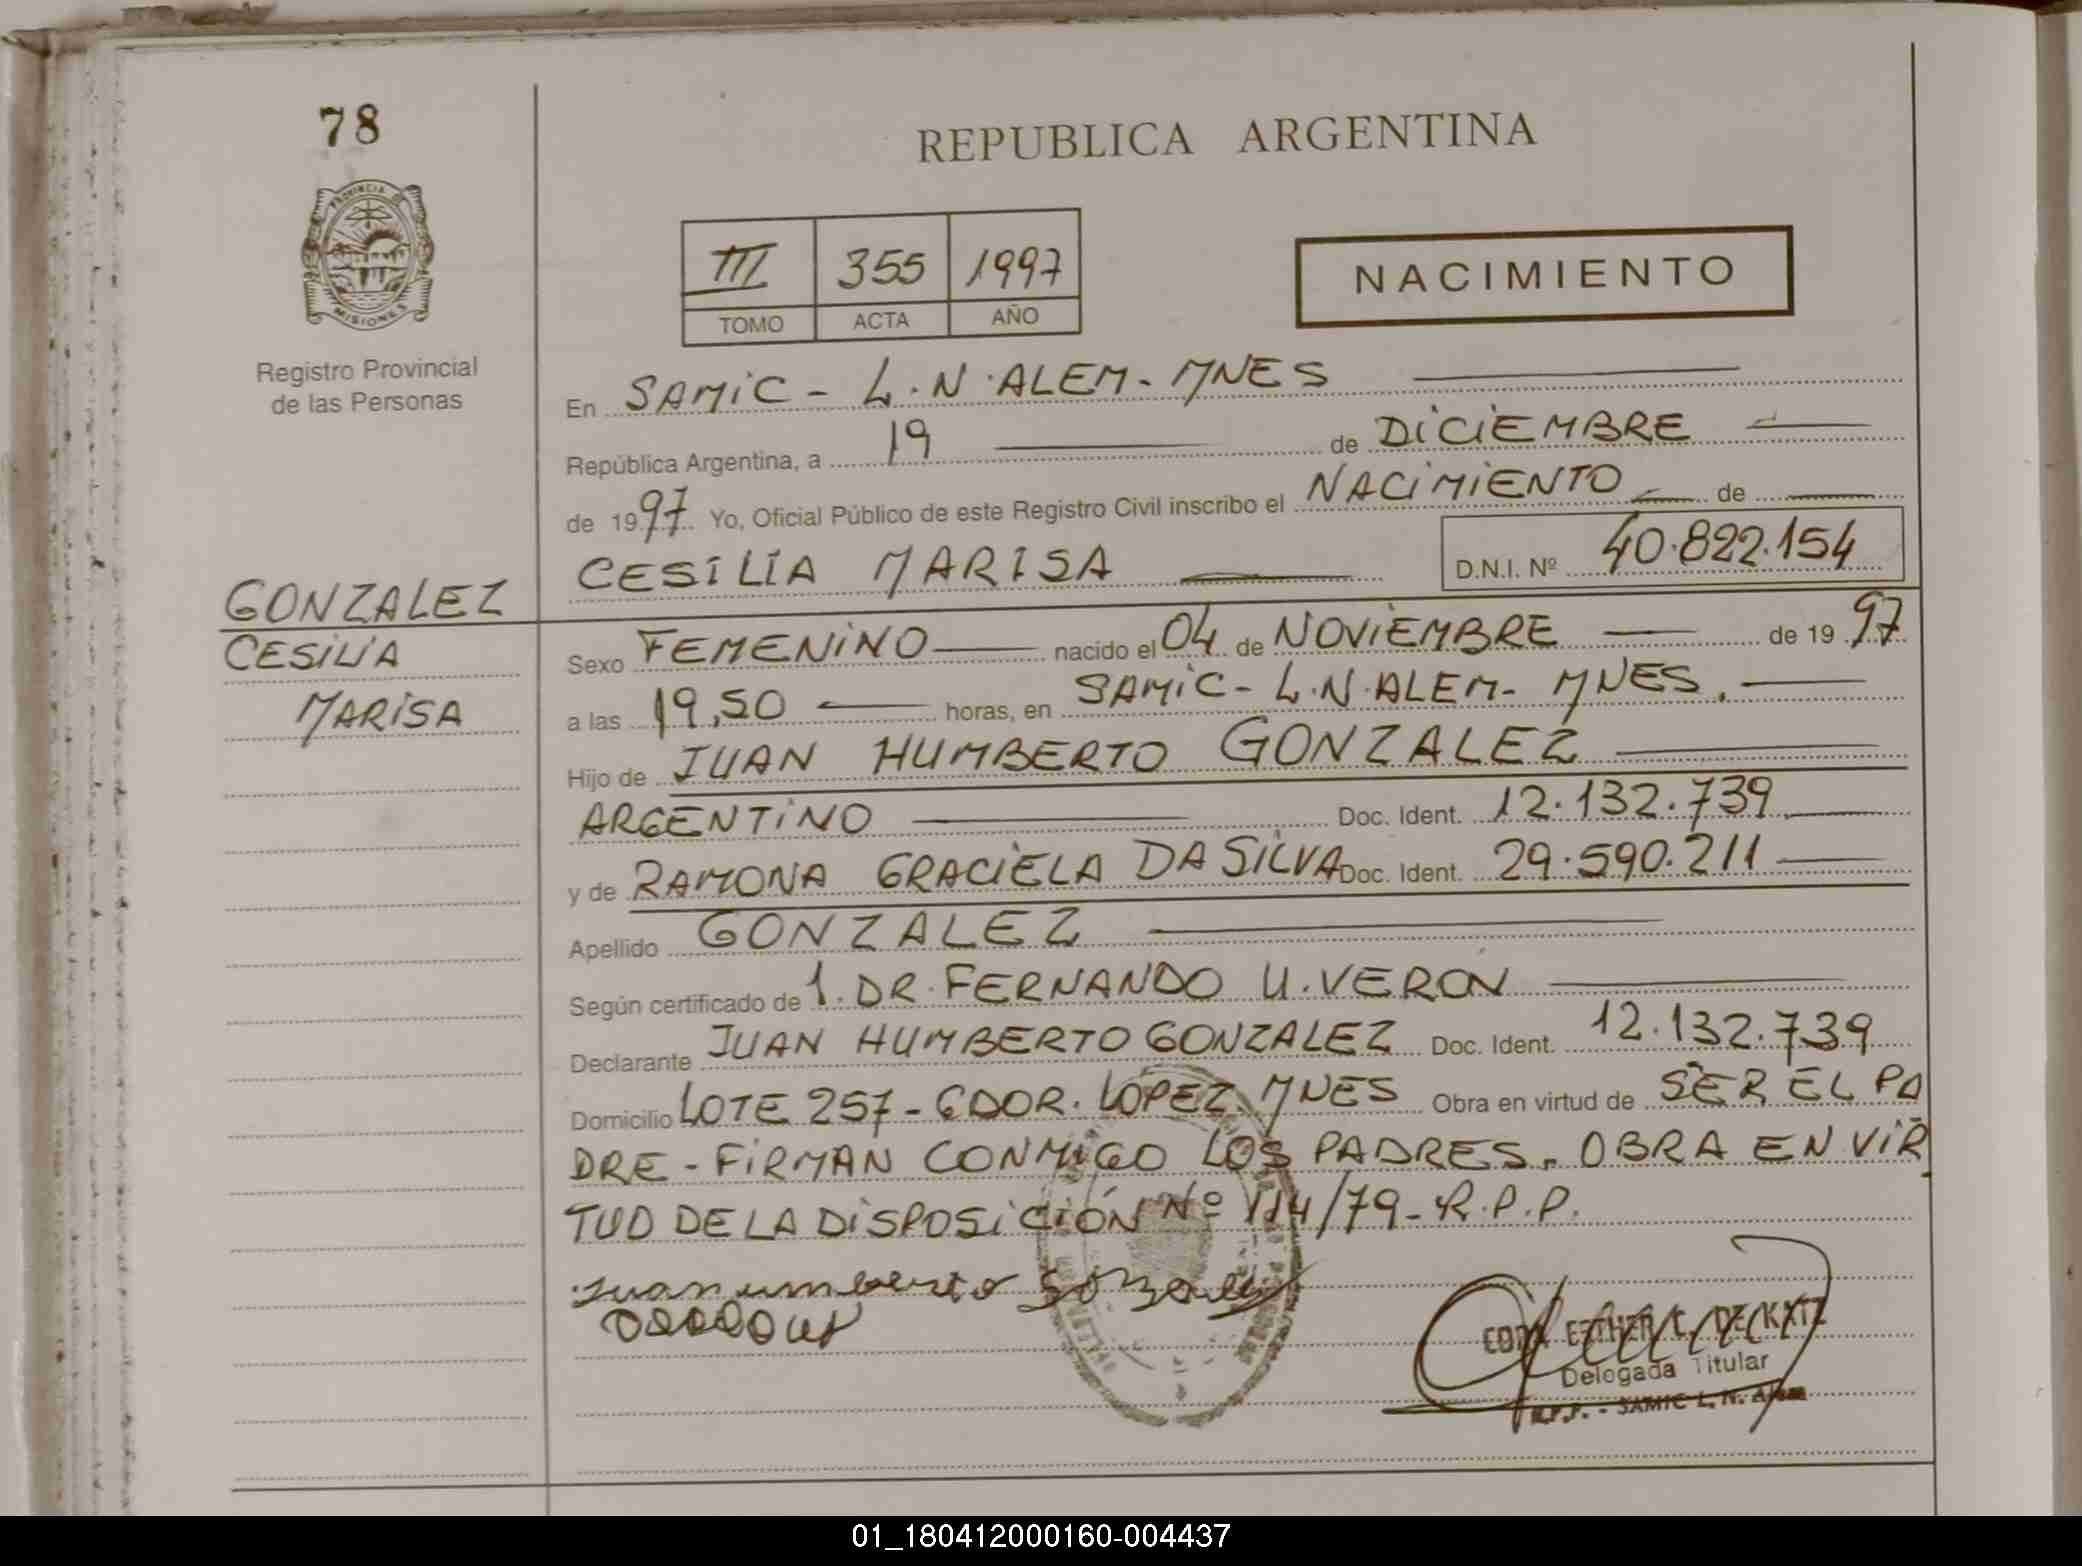 78
REPUBLICA ARGENTINA
PROVINCIA DE
MISIONES
Registro Provincial
de las Personas
III 355 1997
TOMO ACTA AÑO
NACIMIENTO
En SAMIC - L.N.ALEM- MNES
República Argentina, a 19 de DICIEMBRE
de 1997 Yo, Oficial Público de este Registro Civil inscribo el NACIMIENTO de
CESILIA MARISA D.N.I. Nº 40.822.154
GONZALEZ
CESILIA
MARISA
Sexo FEMENINO nacido el 04 de NOVIEMBRE de 1997
a las 19,50 horas, en SAMIC- L.N.ALEM- MNES.
Hijo de JUAN HUMBERTO GONZALEZ
ARGENTINO Doc. Ident. 12.132.739
y de RAMONA GRACIELA DA SILVA Doc. Ident. 29.590.211
Apellido GONZALEZ
Según certificado de 1. DR. FERNANDO U. VERON
Declarante JUAN HUMBERTO GONZALEZ Doc. Ident. 12.132.739
Domicilio LOTE 257- GDOR. LOPEZ. MNES Obra en virtud de SER EL PA
DRE - FIRMAN CONMIGO LOS PADRES. OBRA EN VIR
TUD DE LA DISPOSICIÓN Nº 114/79- R.P.P.
Juan umberto
ESTHER DE KATZ
Delegada Titular
R.P.P. - SAMIC L. N. Alem
01_180412000160-004437